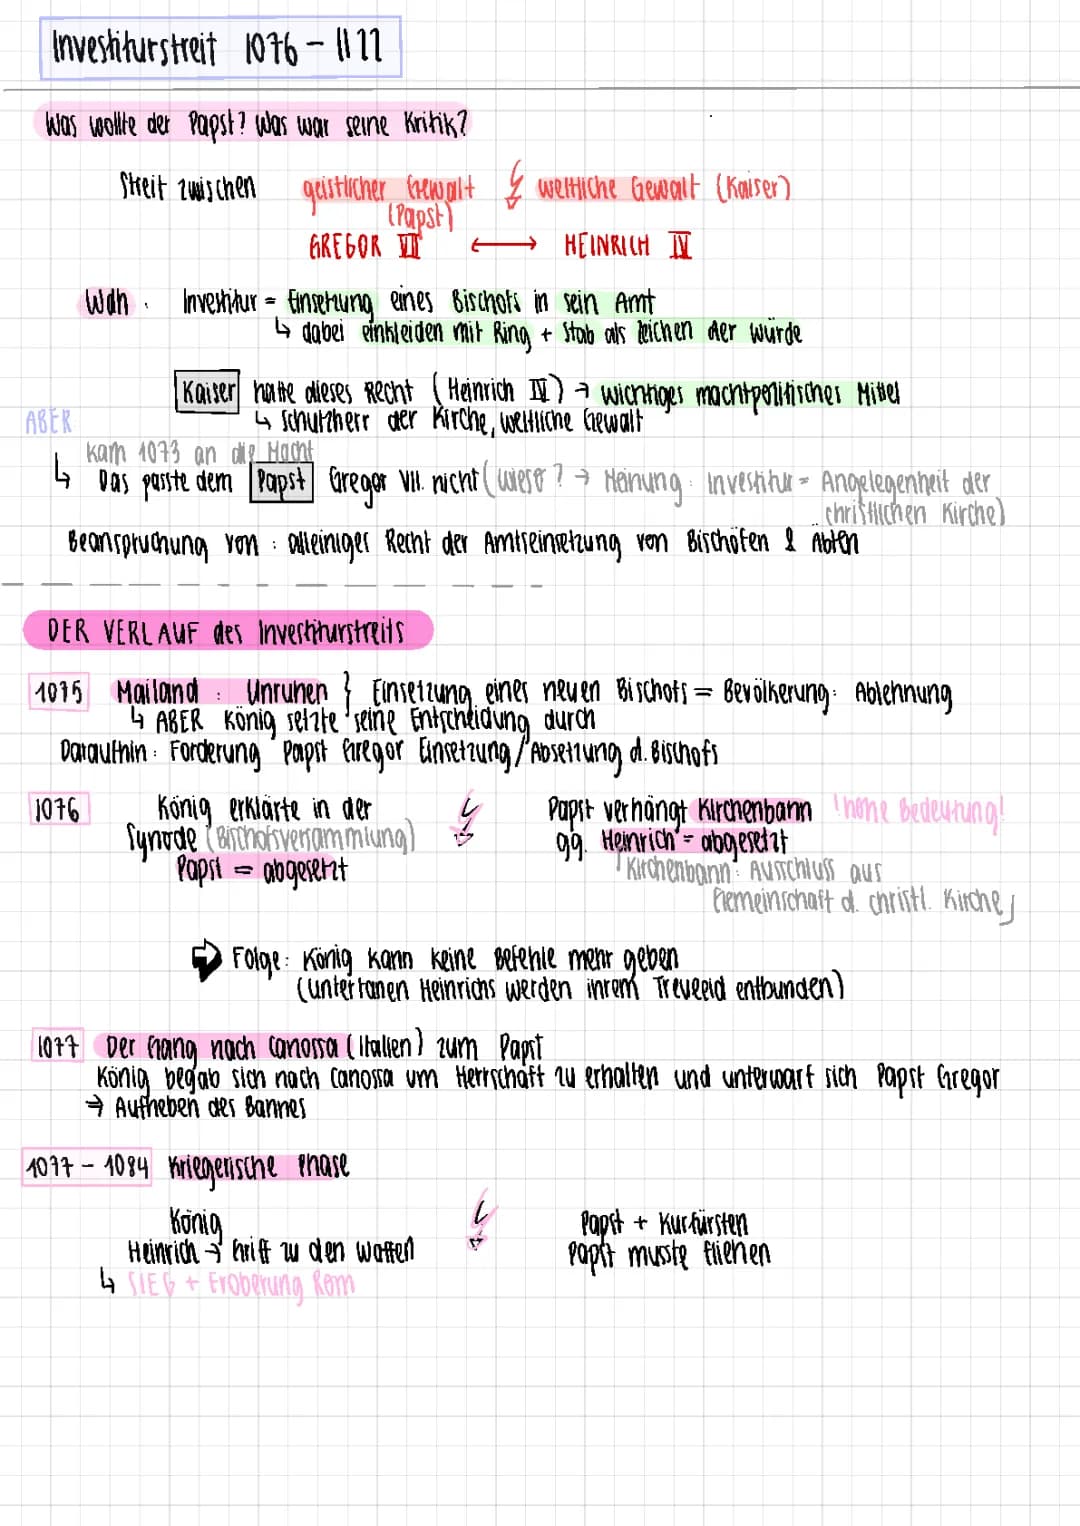 Investiturstreit 1076 - 1122
Was wollte der Papst? Was war seine Kritik?
Streit zwischen geistlicher Gewalt weltliche Gewalt (Kaiser)
(Papst)
GREGOR VII ⟷ HEINRICH IV
Wdh. Investitur = Einsetzung eines Bischofs in sein Amt
↳ dabei einkleiden mit Ring + Stab als Zeichen der Würde
Kaiser hatte dieses Recht (Heinrich IV) → wichtiges machtpolitisches Mittel
↳ Schutzherr der Kirche, weltliche Gewalt
ABER
kam 1073 an die Macht
↳ Das passte dem Papst Gregor VII. nicht (wieso? → Meinung: Investitur = Angelegenheit der
christlichen Kirche)
Beanspruchung von : alleiniges Recht der Amtseinsetzung von Bischöfen & Äbten
DER VERLAUF des Investiturstreits
1075 Mailand : Unruhen } Einsetzung eines neuen Bischofs = Bevölkerung: Ablehnung
↳ ABER König setzte seine Entscheidung durch
Daraufhin : Forderung Papst Gregor Einsetzung/Absetzung d. Bischofs
1076 König erklärte in der Papst verhängt Kirchenbann !hohe Bedeutung!
Synode (Bischofsversammlung) gg. Heinrich = abgesetzt
Papst = abgesetzt Kirchenbann: Ausschluss aus
Gemeinschaft d. christl. Kirche
Folge: König kann keine Befehle mehr geben
(Untertanen Heinrichs werden ihrem Treueeid entbunden)
1077 Der Gang nach Canossa (Italien) zum Papst
König begab sich nach Canossa um Herrschaft zu erhalten und unterwarf sich Papst Gregor
→ Aufheben des Bannes
1077 - 1084 Kriegerische Phase
König Papst + Kurfürsten
Heinrich → Griff zu den Waffen Papst musste fliehen
↳ SIEG + Eroberung Rom